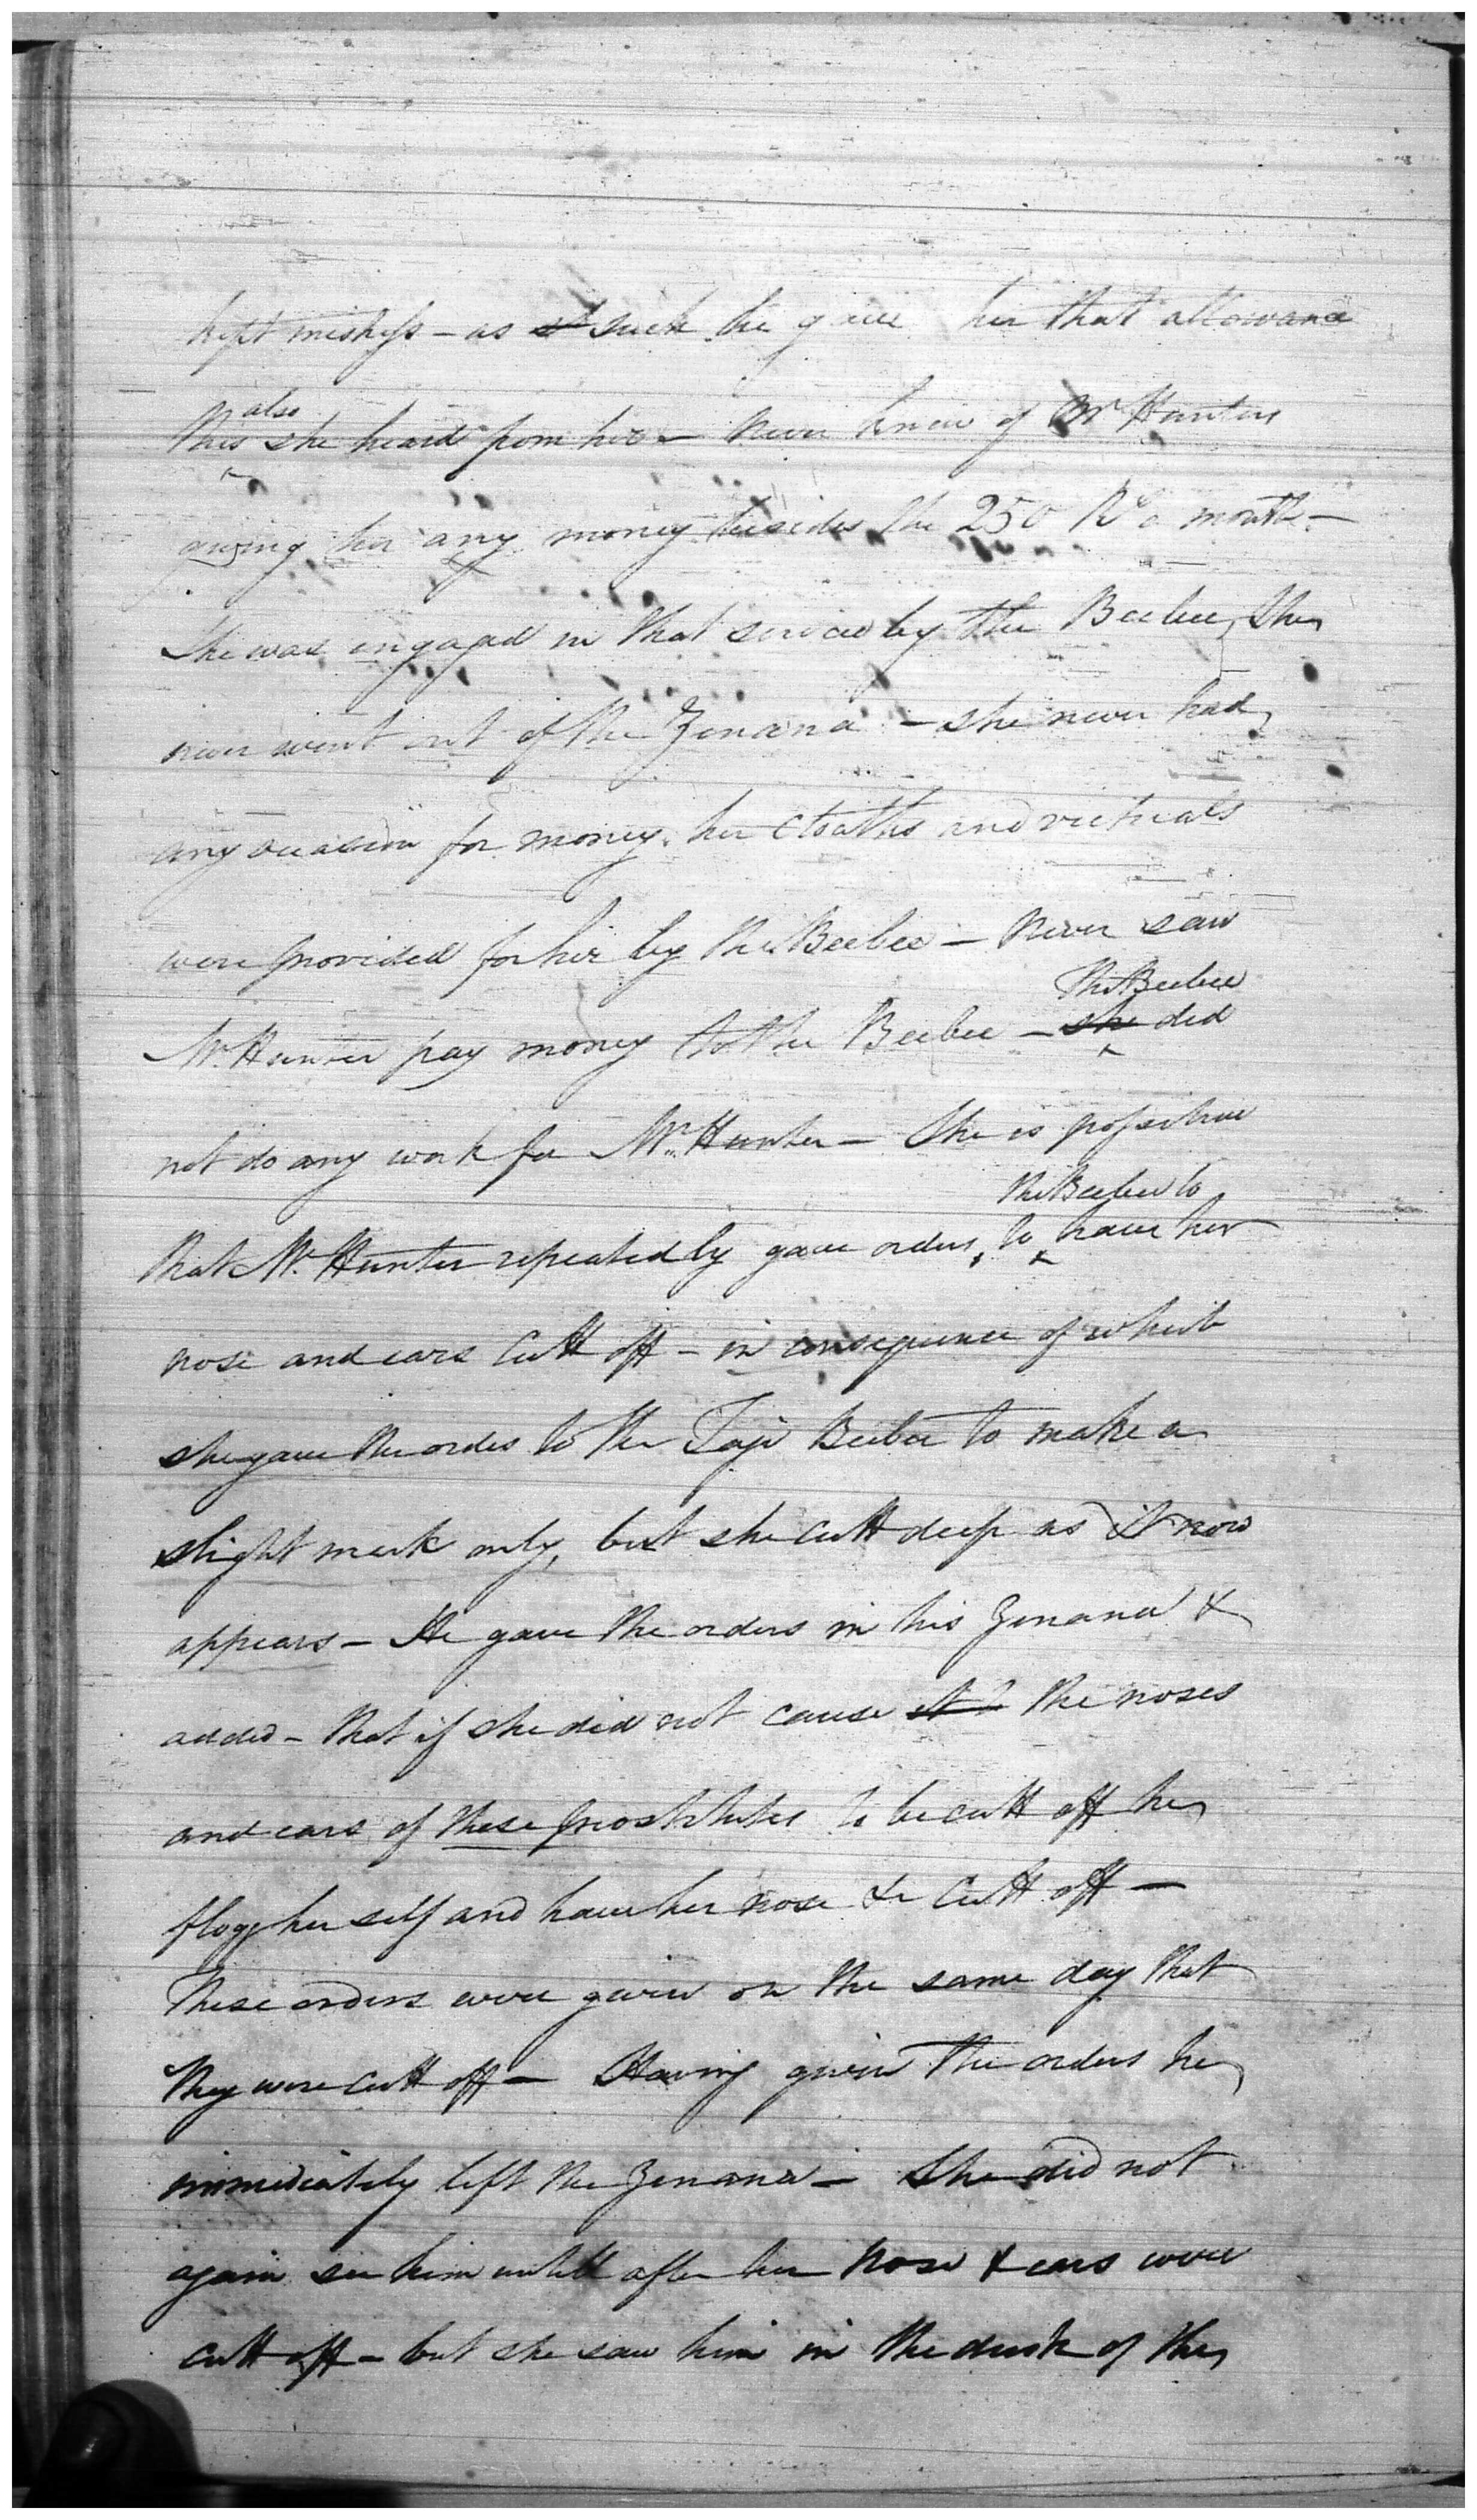 kept mistress - as st such he gave her that allowance
also
This she heard from her - never knew of Mr Hunters
giving her any money besides the 250 Rs a month -
She was engaged in that service by the Beebee, She
never went out of the Zenana - she never had
any occasion for money. her cloaths and victuals
were provided for her by the Beebee - Never saw
The Beebee
Mr. Hunter pay money to the Beebee - she did
not do any work for Mr. Hunter - She is possitive
the Beebee to
that Mr. Hunter repeatedly gave orders, to have her
nose and ears cutt off - in consequence of which
she gave the order to the Taje Beebee to make a
slight mark only, but she cutt deep as it now
appears - He gave the orders in his Zenana &
added - that if she did not cause the noses
and ears of these prostitutes to be cutt off he
flogg her self and have her nose &c cutt off -
These orders were given on the same day that
they were cutt off - Having given the orders he
immediately left the Zenana - She did not
again see him untill after her nose & ears were
cutt off - but she saw him in the dusk of the